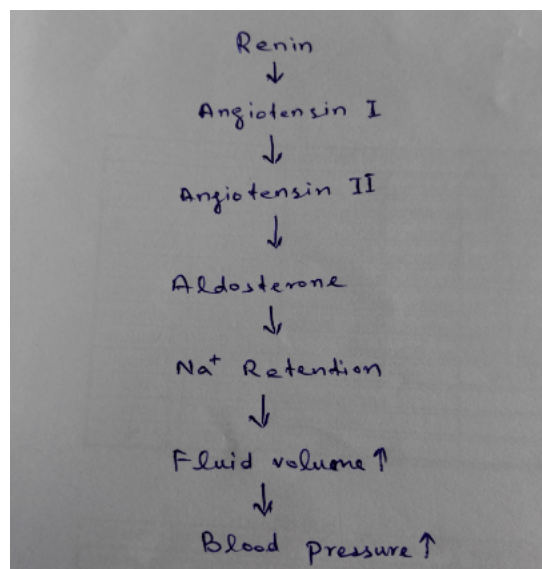 Renin
↓
Angiotensin I
↓
Angiotensin II
↓
Aldosterone
↓
Na⁺ Retention
↓
Fluid volume ↑
↓
Blood pressure ↑